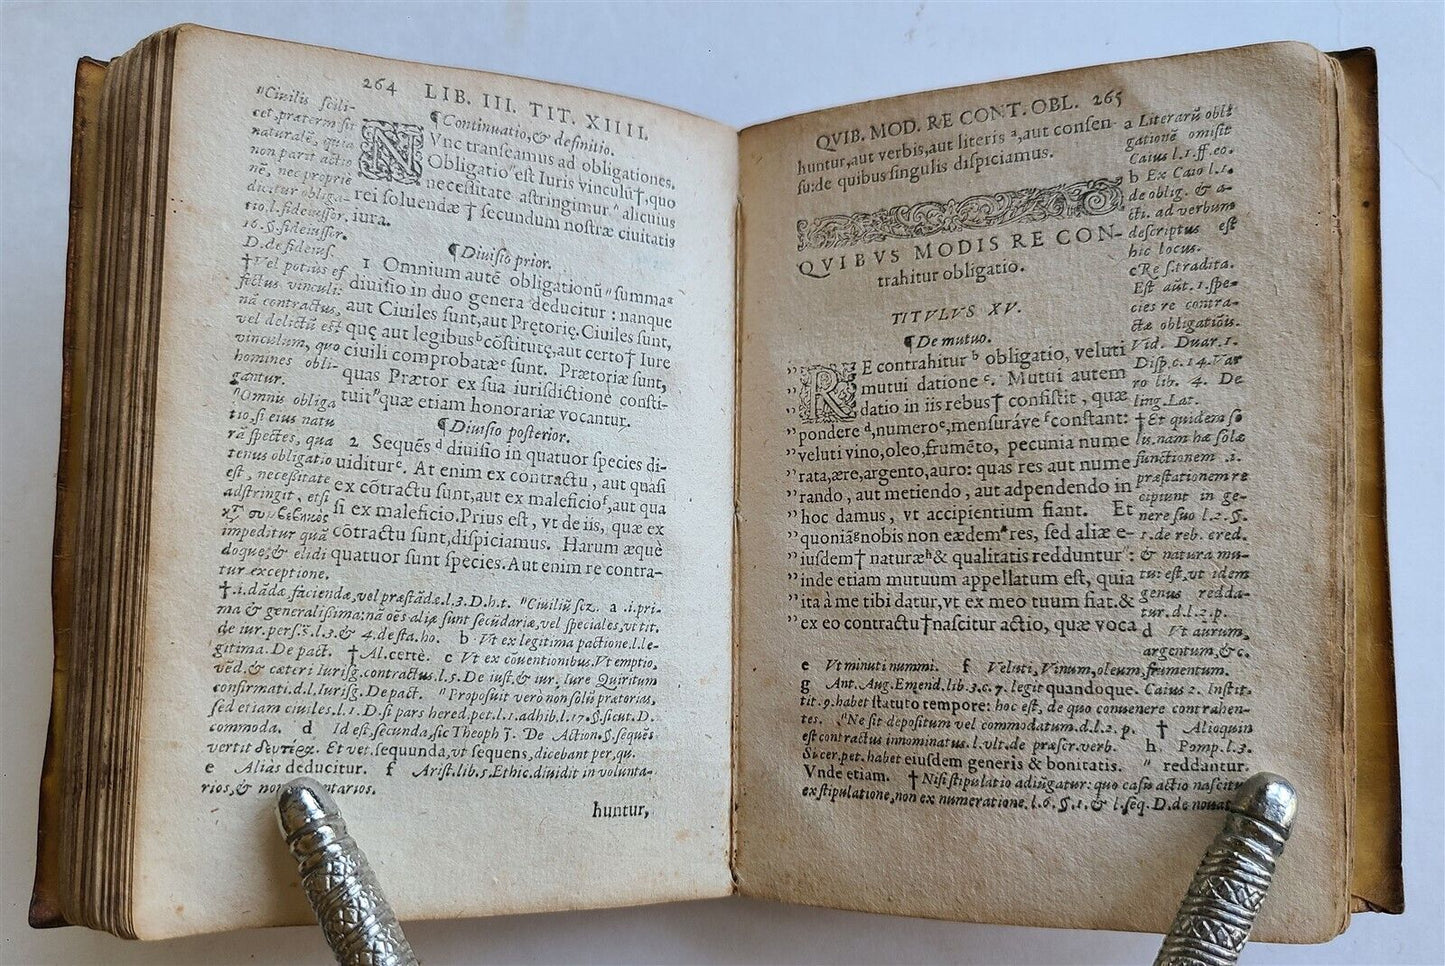 264 LIB. III. TIT. XIIII.
¶Continuatio,& definitio.
NVnc transeamus ad obligationes.
Obligatio est Iuris vinculũ†, quo
necessitate astringimur " alicuius
rei soluendæ † secundum nostræ ciuitatis
iura.
¶Diuisio prior.
1 Omnium autẽ obligationũ " summa ª
diuisio in duo genera deducitur : nanque
aut Ciuiles sunt,aut Pretorię. Ciuiles sunt,
quę aut legibus ᵇ cõstitutę,aut certo† Iure
ciuili comprobatæ ᶜ sunt. Prætoriæ sunt,
quas Prætor ex sua iurisdictione consti-
tuit " quæ etiam honorariæ vocantur.
¶Diuisio posterior.
2 Sequẽs ᵈ diuisio in quatuor species di-
uiditur ᵉ. At enim ex contractu , aut quasi
ex cõtractu sunt,aut ex maleficio ᶠ,aut qua
si ex maleficio.Prius est , vt de iis, quæ ex
cõtractu sunt,dispiciamus. Harum æquè
quatuor sunt species.Aut enim re contra-
"Ciuilis scili-
cet,præterm sit
naturalẽ, quia
non parit actio
nẽ, nec propriè
dicitur obliga-
tio.l.fideiussor.
16.§.fideiussor.
D.de fideius.
†Vel potius ef
fectus vinculi:
nã contractus,
vel delictũ est
vinculum, quo
homines obli-
gantur.
"Omnis obliga
tio,si eius natu
rã spectes, qua
tenus obligatio
est , necessitate
adstringit, etsi
impeditur quã
doque,& elidi
tur exceptione.
†.i.dãdæ,faciendæ,vel præstãdæ.l.3.D.h.t. "Ciuiliũ scz. a .i.pri-
ma & generalissima:nã oẽs aliæ sunt secũdariæ,vel speciales,vt tit.
de iur.pers.s̃.l.3.& 4.de sta.ho. b Vt ex legitima pactione.l.le-
gitima.De pact. †Al.certè. c Vt ex cõuentionibus.Vt emptio,
vẽd.& cæteri Iurisg.contractus.l.5.De iust.& iur. Iure Quiritum
confirmati.d.l.Iurisg.De pact. "Proposuit verò non solũ prætorias,
sed etiam ciuiles.l.1.D.si pars hered.pet.l.1.adhib.l.17.§.sicut.D.
commoda. d Id est,secunda,sic Theoph ĩ. De Action.§.sequẽs
vertit δευτέρα. Et vet.sequunda,vt sequens,dicebant per,qu.
e Alias deducitur. f Arist.lib.5.Ethic.diuidit in volunta-
rios,&
huntur,
QVIB. MOD. RE CONT. OBL. 265
huntur,aut verbis,aut literis ª,aut consen-
su:de quibus singulis dispiciamus.
QVIBVS MODIS RE CON-
trahitur obligatio.
TITVLVS XV.
¶De mutuo.
"RE contrahitur ᵇ obligatio, veluti
" mutui datione ᶜ. Mutui autem
" datio in iis rebus† consistit , quæ
" pondere ᵈ,numero ᵉ,mensuráve ᶠ constant:
" veluti vino,oleo,frumẽto, pecunia nume
" rata,ære,argento,auro: quas res aut nume
" rando , aut metiendo , aut adpendendo in
" hoc damus , vt accipientium fiant. Et
" quoniã ᵍ nobis non eædem " res, sed aliæ e-
" iusdem† naturæ ʰ & qualitatis redduntur " :
" inde etiam mutuum appellatum est, quia
" ita à me tibi datur,vt ex meo tuum fiat.&
" ex eo contractu†nascitur actio, quæ voca
a Literarũ obli
gationẽ omisit
Caius l.1.ff.eo.
b Ex Caio l.1.
de oblig. & a-
cti. ad verbum
descriptus est
hic locus.
cRe s.tradita.
Est aũt. 1.spe-
cies re contra-
ctæ obligatiõis.
Vid. Duar.1.
Disp.c.14.Var
ro lib. 4. De
ling.Lat.
†Et quidem so
lũ.nam hæ solæ
functionem .i.
præstationem re
cipiunt in ge-
nere suo l.2.§.
1.de reb. cred.
& natura mu-
tui est,vt idem
genus redda-
tur.d.l.2.p.
d Vt aurum,
argentum,&c.
e Vt minuti nummi. f Veluti, Vinum,oleum,frumentum.
g Ant. Aug.Emend.lib.3.c.7.legit quandoque. Caius 2. Instit.
tit.9.habet statuto tempore: hoc est, de quo conuenere contrahen-
tes. "Ne sit depositum vel commodatum.d.l.2.p. † Alioquin
est contractus innominatus.l.vlt.de præscr.verb. h. Pomp.l.3.
Si cer.pet.habet eiusdem generis & bonitatis. " reddantur.
Vnde etiam. †Nisi stipulatio adiũgatur: quo casu actio nascitur
ex stipulatione,non ex numeratione.l.6.§.1.& l.seq.D.de nouat.